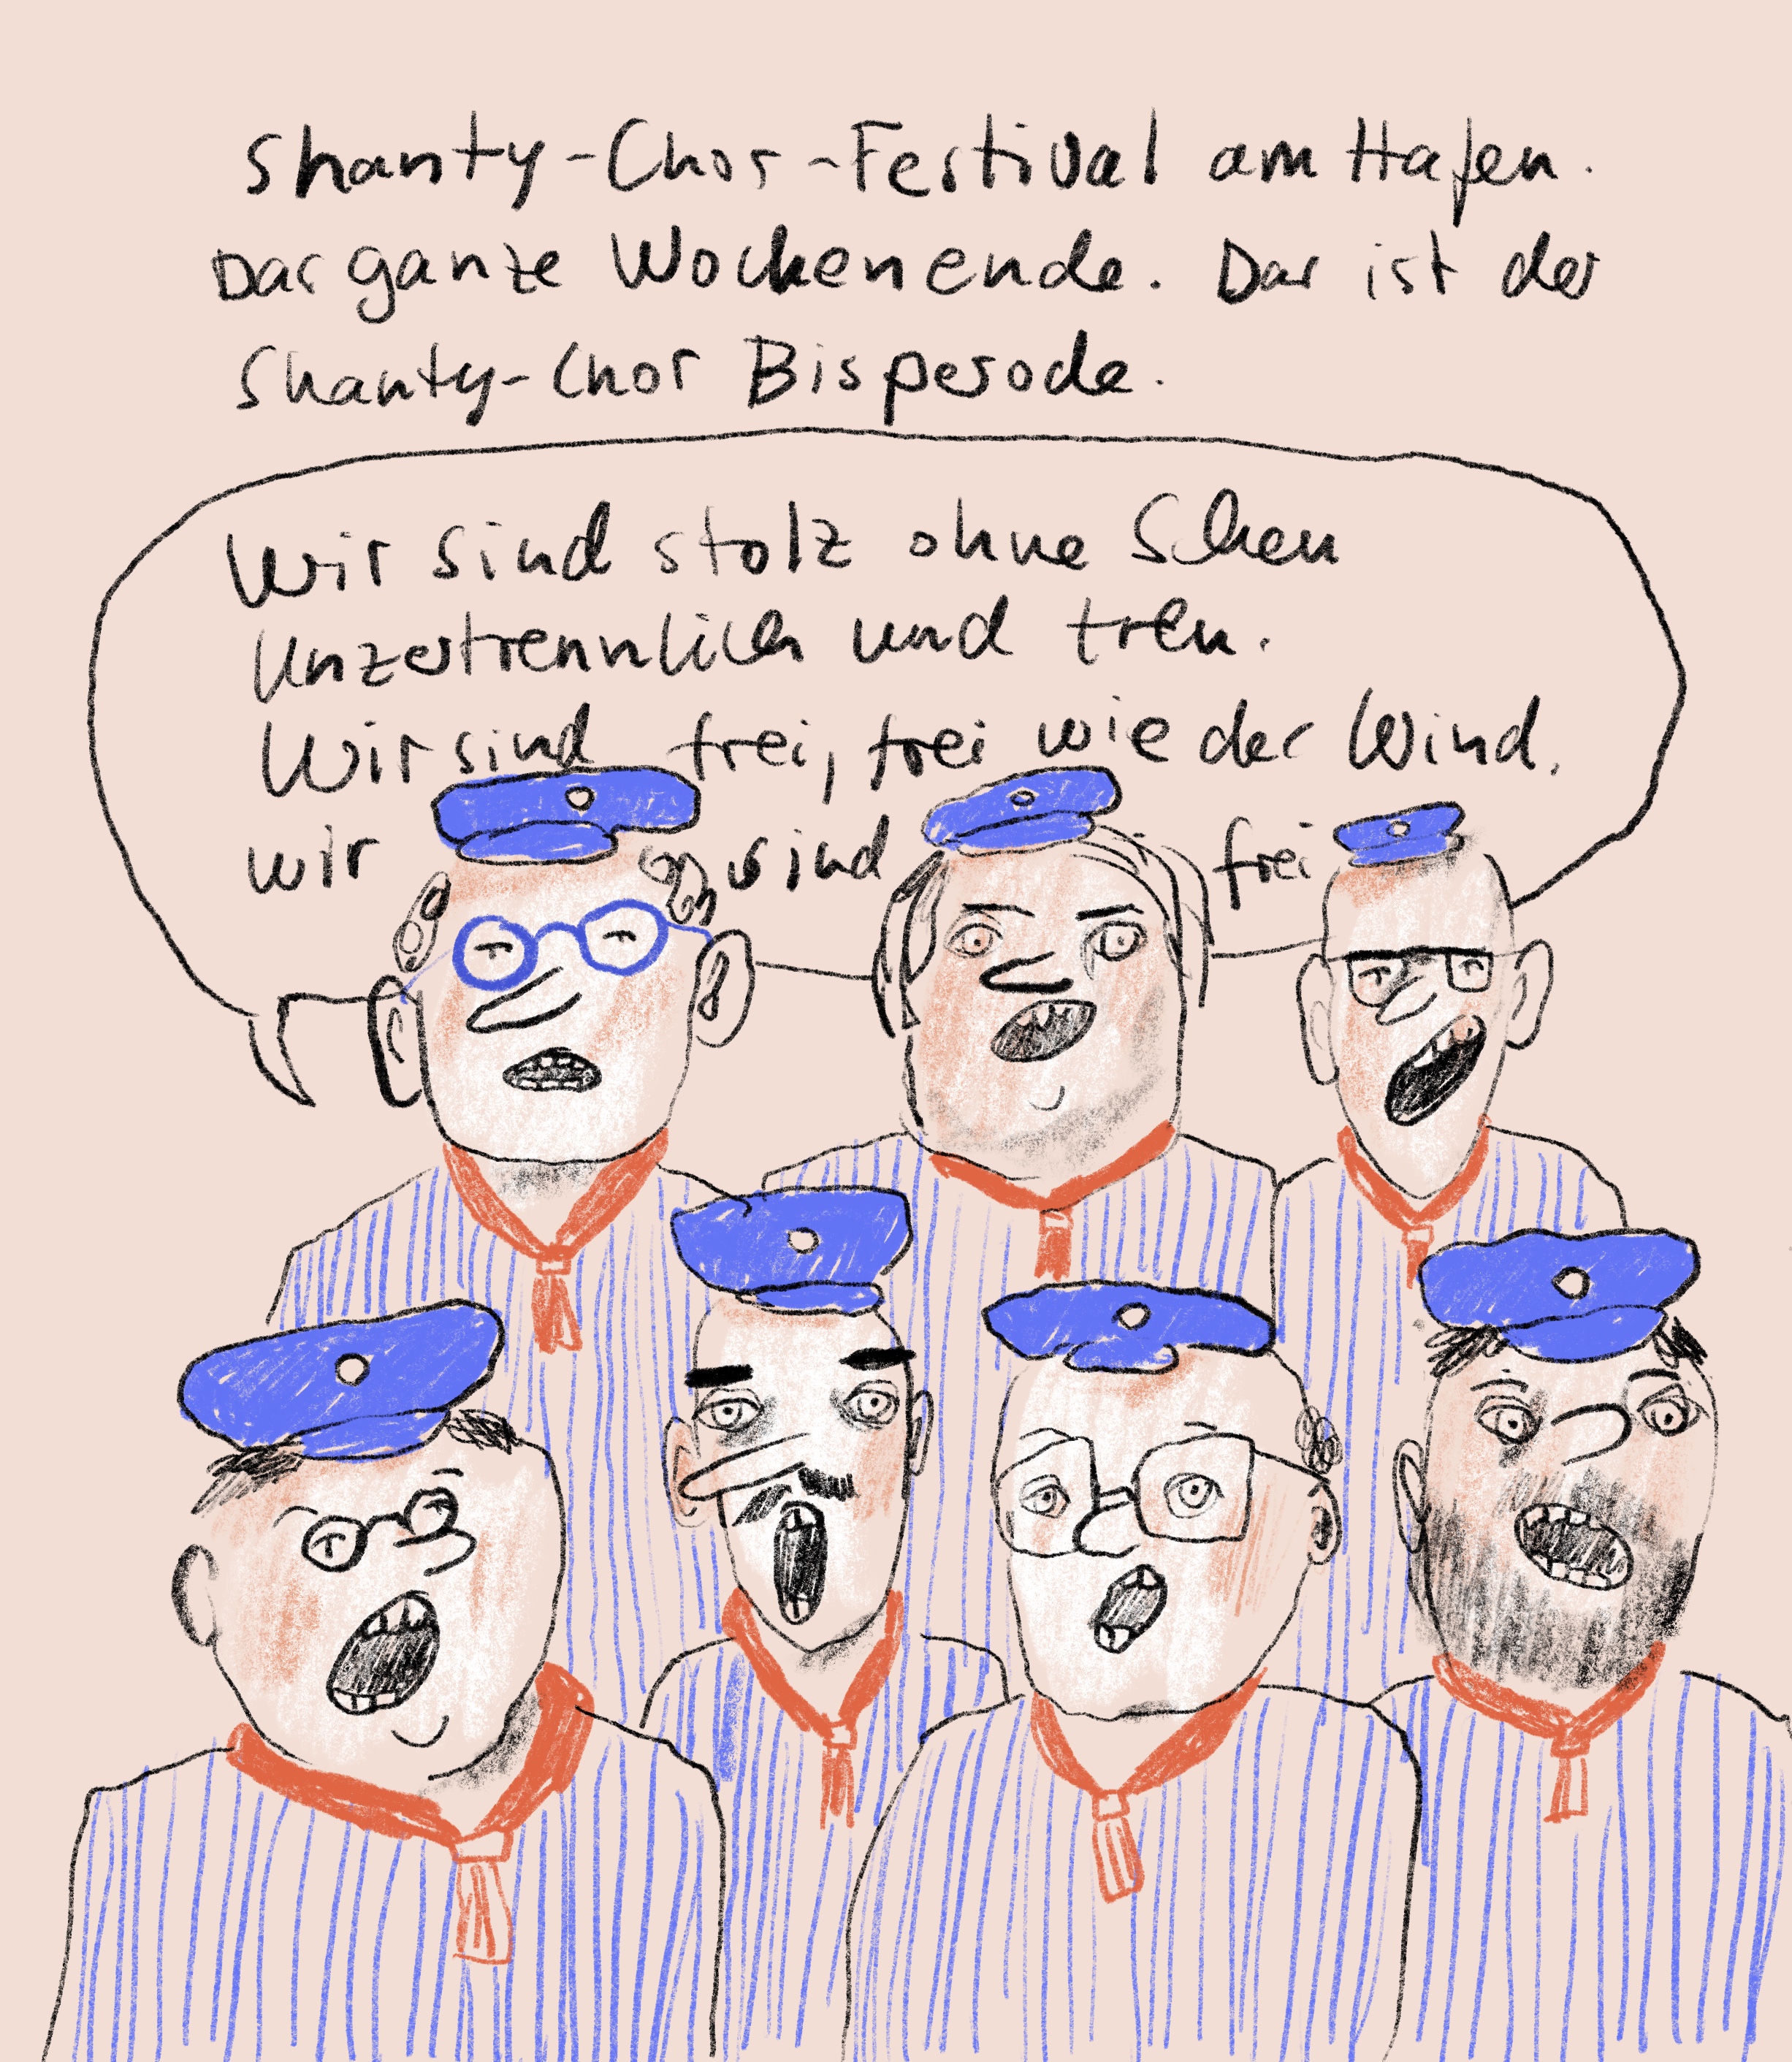 Shanty-Chor-Festival am Hafen.
Das ganze Wochenende. Das ist der
Shanty-Chor Bisperode.
Wir sind stolz ohne Scheu
Unzertrennlich und treu.
Wir sind frei, frei wie der Wind,
wir sind frei